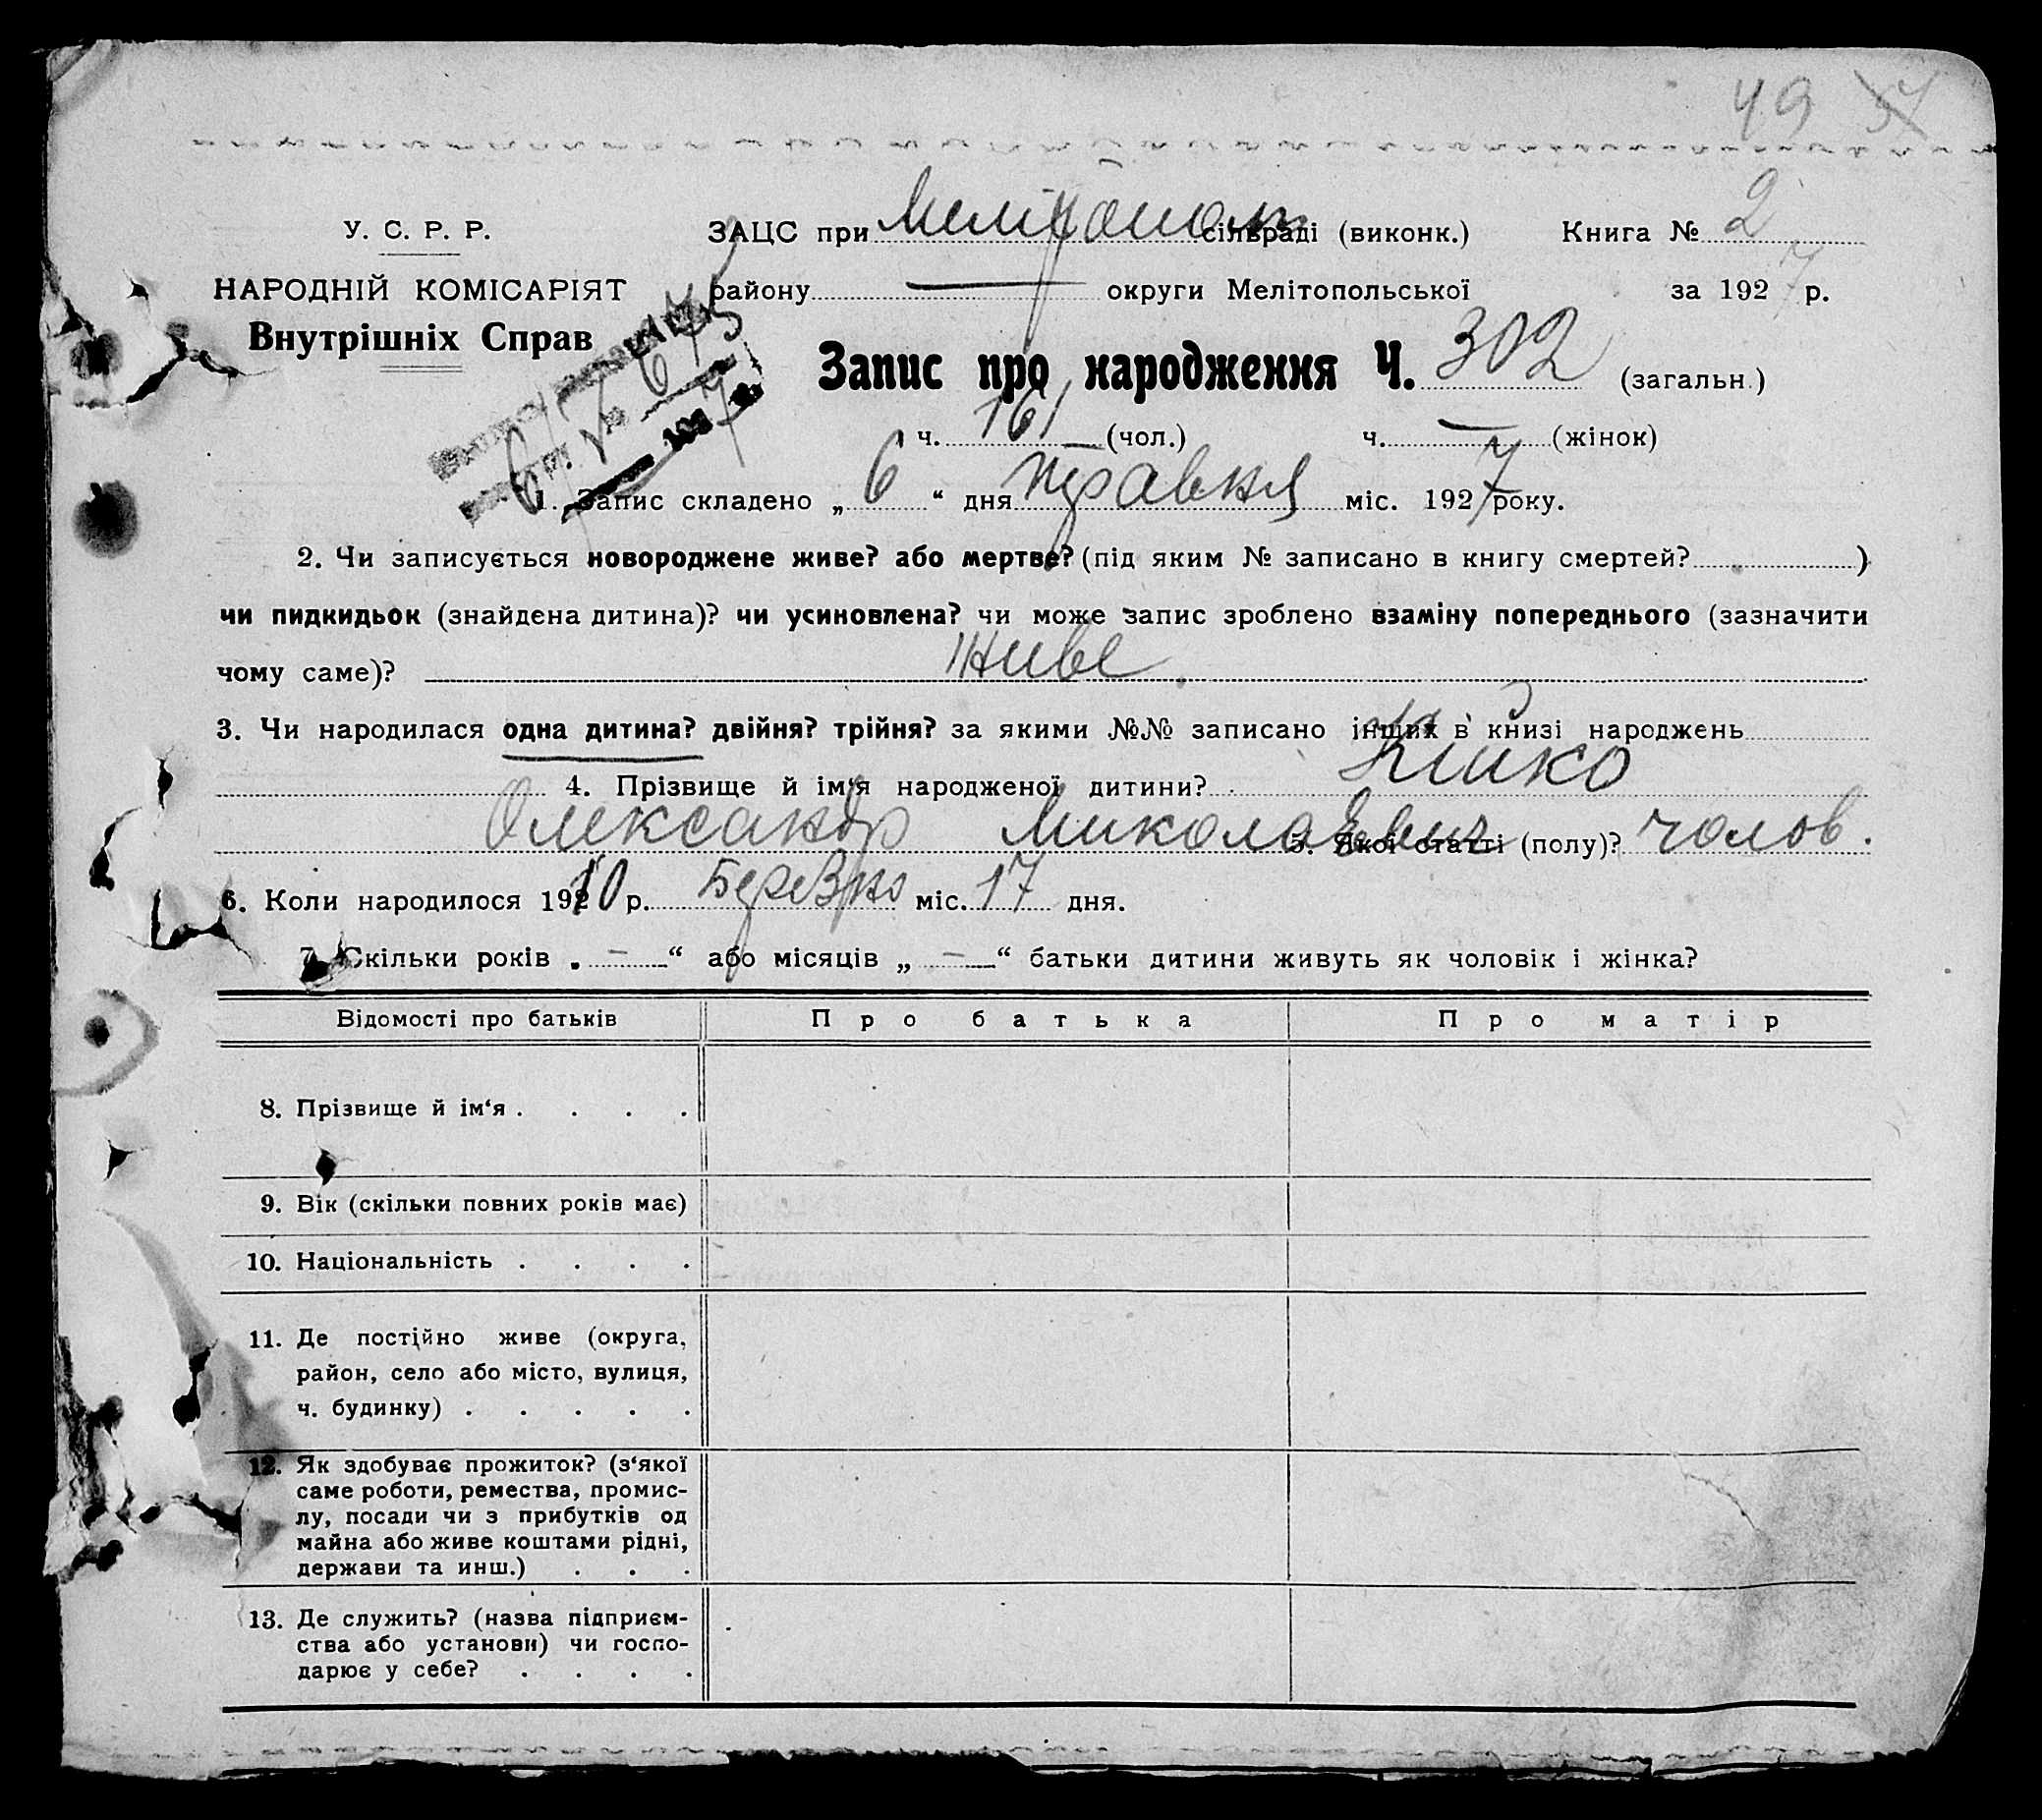 49 57
У. С. Р. Р.
НАРОДНІЙ КОМІСАРІЯТ
Внутрішніх Справ
ЗАЦС при Мелітополь сільраді (виконк.) Книга № 2
району — округи Мелітопольської за 1927 р.
Запис про народження Ч. 302 (загальн.)
ч. 161 (чол.) ч. — (жінок)
1. Запис складено „ 6 “ дня травня міс. 1927 року.
2. Чи записується новороджене живе? або мертве? (під яким № записано в книгу смертей? )
чи пидкидьок (знайдена дитина)? чи усиновлена? чи може запис зроблено взаміну попереднього (зазначити
чому саме)? Живе.
3. Чи народилася одна дитина? двійня? трійня? за якими №№ записано інших в книзі народжень
4. Прізвище й ім‘я народженої дитини?
Олександр Миколаєвич 5. Якої статті (полу)? чолов.
6. Коли народилося 1910 р. Березня міс. 17 дня.
7. Скільки років „ — “ або місяців „ — “ батьки дитини живуть як чоловік і жінка?
Відомості про батьків Про батька Про матір
8. Прізвище й ім‘я . . . .
9. Вік (скільки повних років має)
10. Національність . . . .
11. Де постійно живе (округа,
район, село або місто, вулиця,
ч. будинку) . . . . .
12. Як здобуває прожиток? (з‘якої
саме роботи, ремества, промис-
лу, посади чи з прибутків од
майна або живе коштами рідні,
держави та инш.) . . .
13. Де служить? (назва підприєм-
ства або установи) чи госпо-
дарює у себе? . . . .